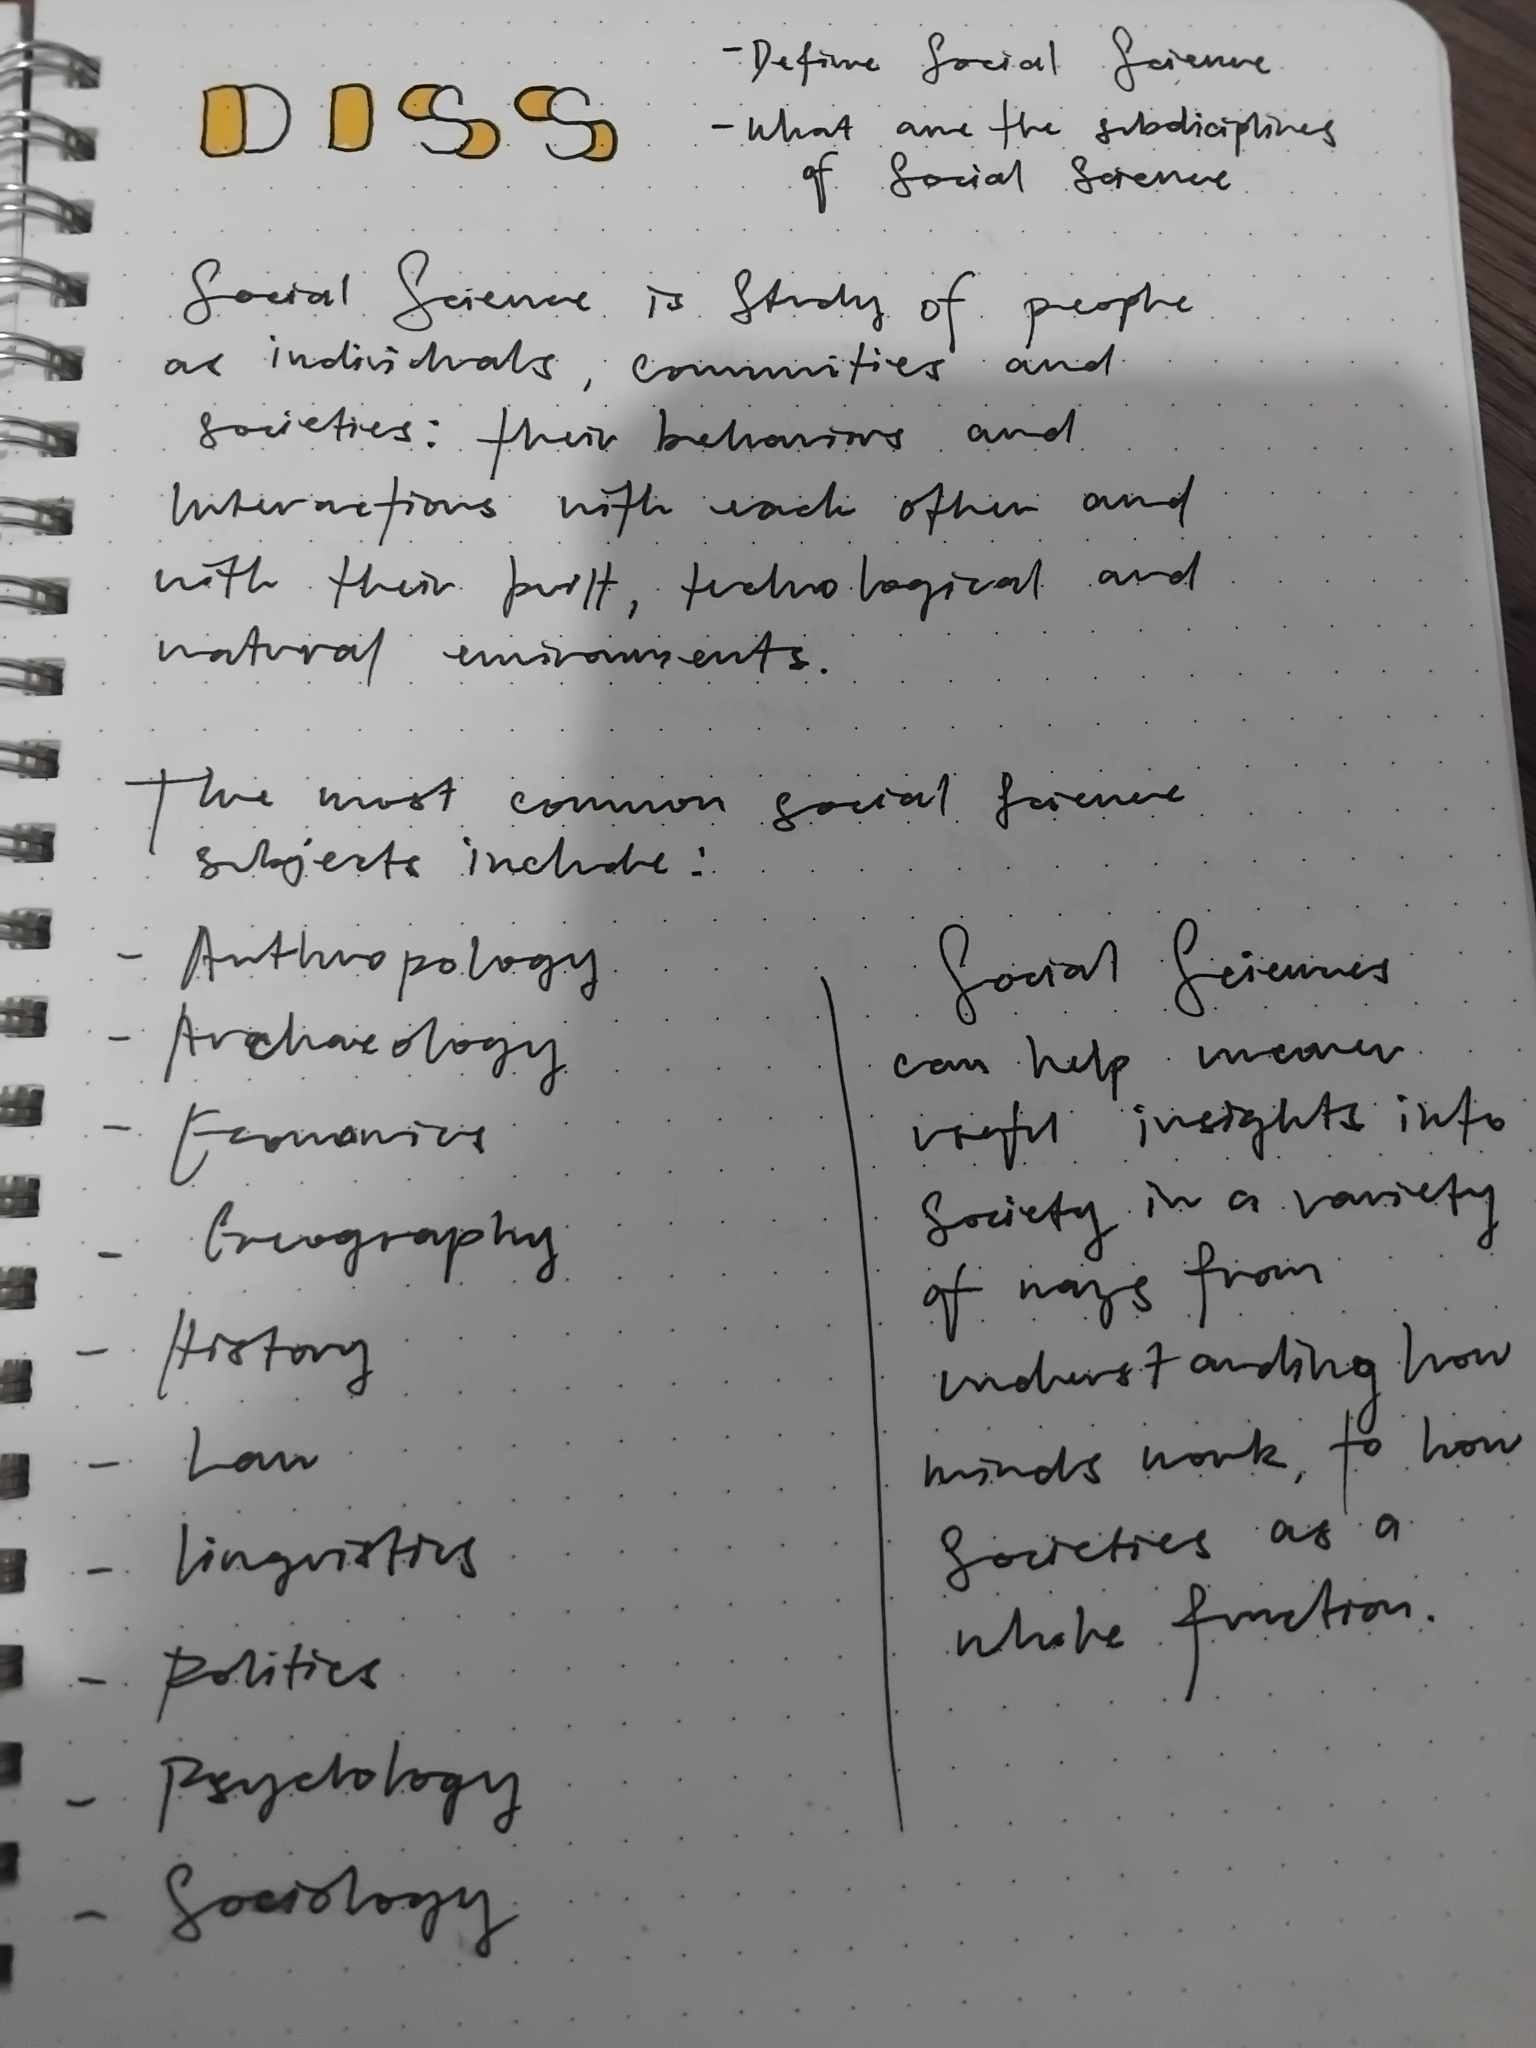 DISS
- Define Social Science
- What are the subdiciplines
of Social Science
Social Science is Study of people
as individuals, communities and
societies: their behaviors and
Interactions with each other and
with their built, technological and
natural environments.
The most common social science
subjects include:
- Anthropology
- Archaeology
- Economics
- Geography
- History
- Law
- Linguistics
- Politics
- Psychology
- Sociology
Social Sciences
can help uncover
useful insights into
Society in a variety
of ways from
understanding how
minds work, to how
Societies as a
whole function.